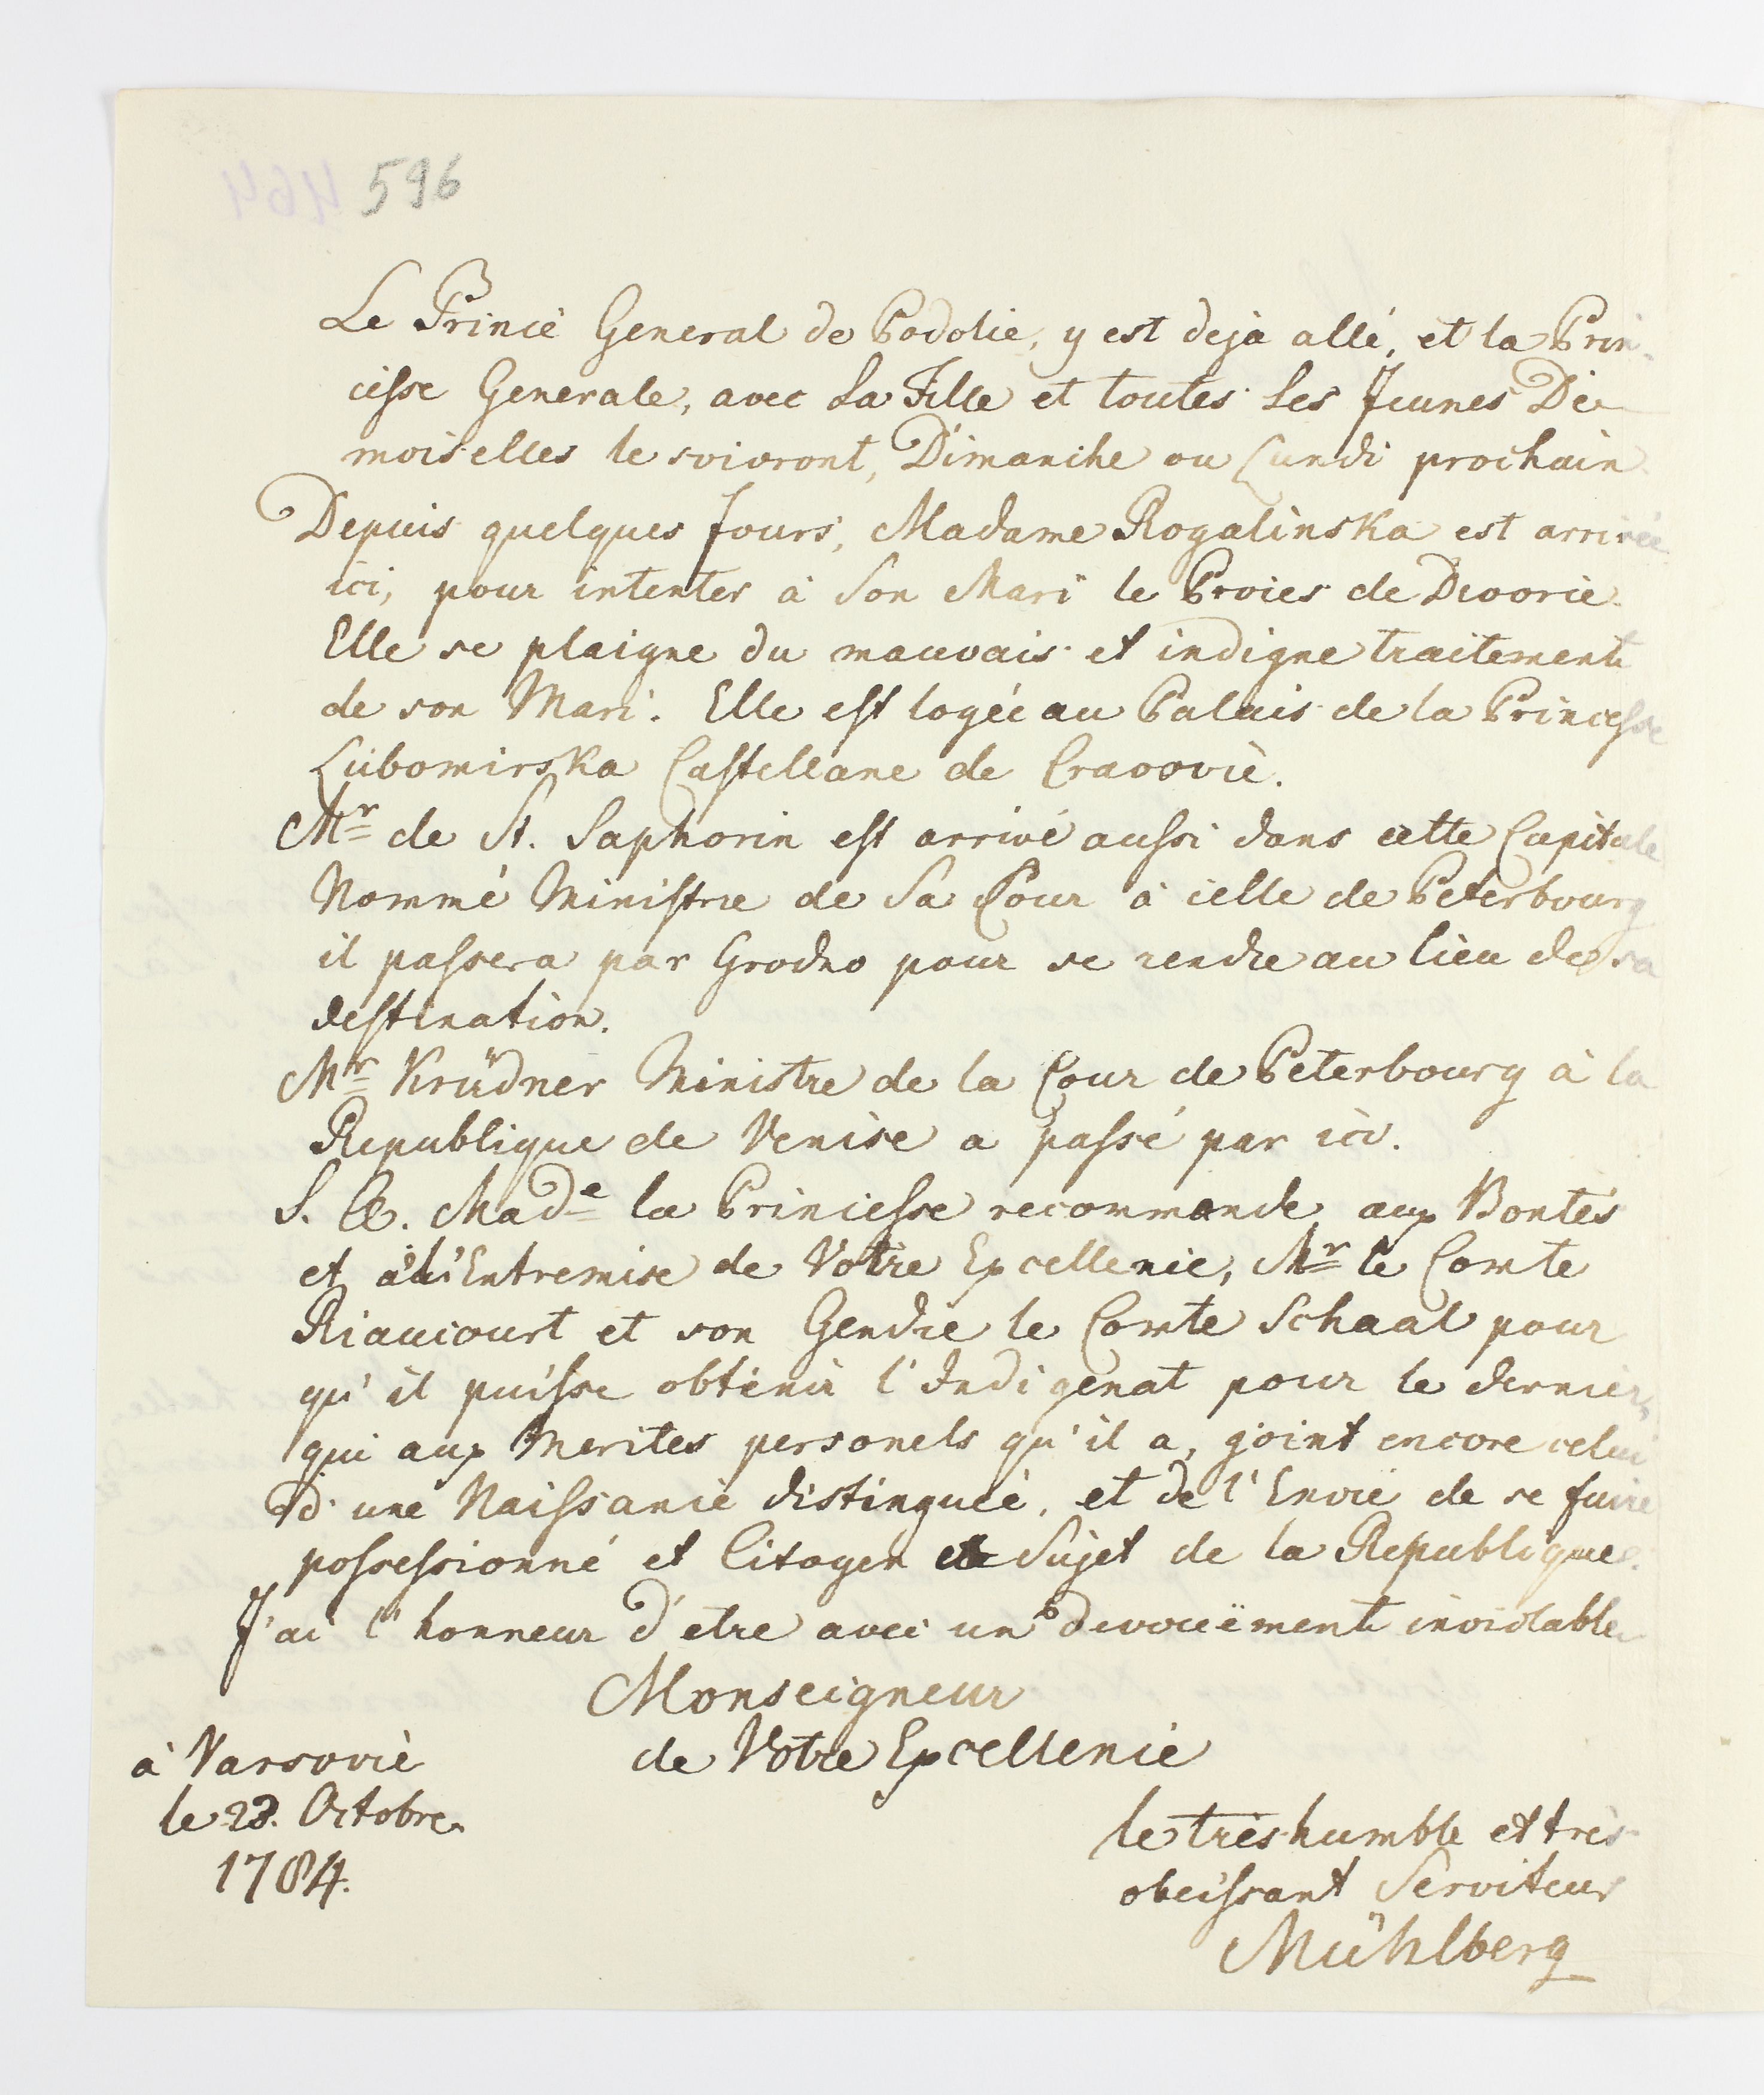 596
Le Prince General de Podolie, y est deja allé, et la Prin-
cesse Generale, avec Sa Fille et toutes Ses Jeunes De
moiselles le suivront, Dimanche ou Lundi prochain
Depuis quelques Jours, Madame Rogalinska est arrivée
ici, pour intenter à Son Mari le Proces de Divorce.
Elle se plaigne du mauvais et indigne traitement
de son Mari. Elle est logée au Palais de la Princesse
Lubomirska Castellane de Cracovie.
Mr de St. Saphorin est arrivé aussi dans cette Capitale
Nommé Ministre de Sa Cour à celle de Peterbourg
il passera par Grodno pour se rendre au lieu de sa
destination.
Mr Krüdner Ministre de la Cour de Peterbourg à la
Republique de Venise a passé par ici.
S. A. Made la Princesse recommande aux Bontés
et à l'Entremise de Votre Excellence, Mr le Comte
Riaucourt et son Gendre le Comte Schaal pour
qu'il puisse obtenir l'Indigenat pour le dernier,
qui aux Merites personels qu'il a, joint encore celui
d'une Naissance distinguée, et de l'Envie de se faire
possessionné et Citoyen et Sujet de la Republique.
J'ai l'honneur d'etre avec un devouëment inviolable
Monseigneur
de Votre Excellence
à Varsovie
le 23. Octobre
1784.
le très humble et très
obeissant Serviteur
Mühlberg